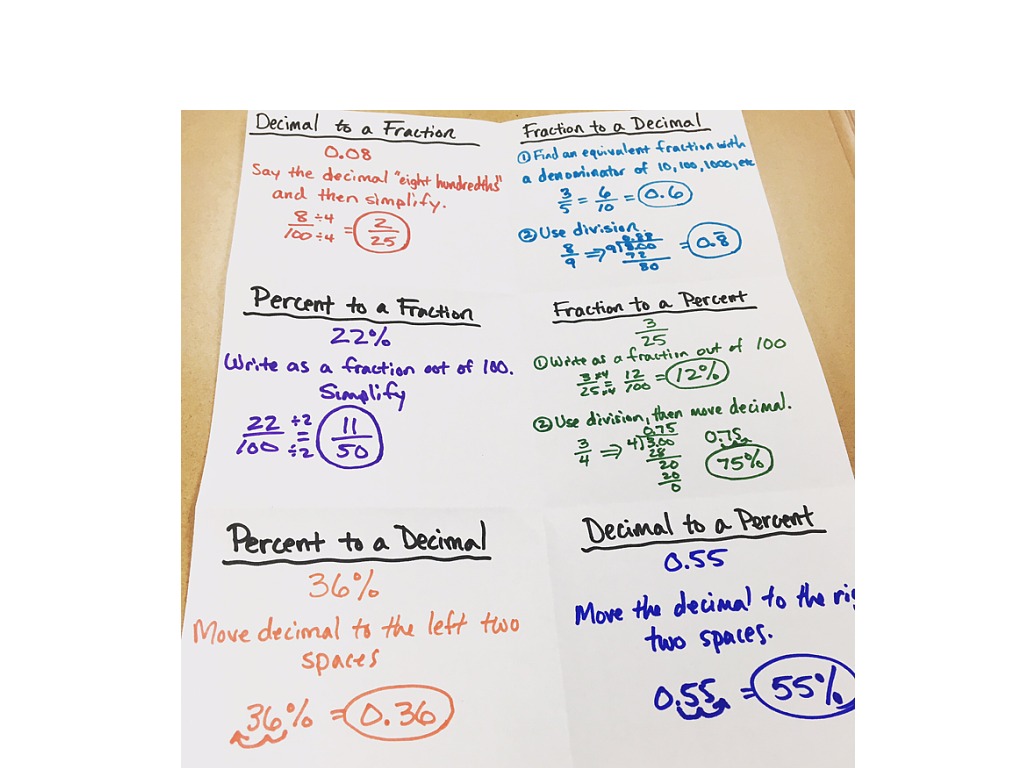 Decimal to a Fraction
0.08
Say the decimal "eight hundredths"
and then simplify.
8/100 ÷4 ÷4 = 2/25
Fraction to a Decimal
① Find an equivalent fraction with
a denominator of 10, 100, 1000, etc
3/5 = 6/10 = 0.6
② Use division.
8/9 ⇒ 9)8.00 0.88 = 0.8̄
72
80
Percent to a Fraction
22%
Write as a fraction out of 100.
Simplify
22/100 ÷2 = ÷2 11/50
Fraction to a Percent
3/25
① Write as a fraction out of 100
3/25 ×4 ×4 = 12/100 = 12%
② Use division, then move decimal.
3/4 ⇒ 4)3.00 0.75
28
20
20
0
0.75
75%
Percent to a Decimal
36%
Move decimal to the left two
spaces
36% = 0.36
Decimal to a Percent
0.55
Move the decimal to the rig
two spaces.
0.55 = 55%